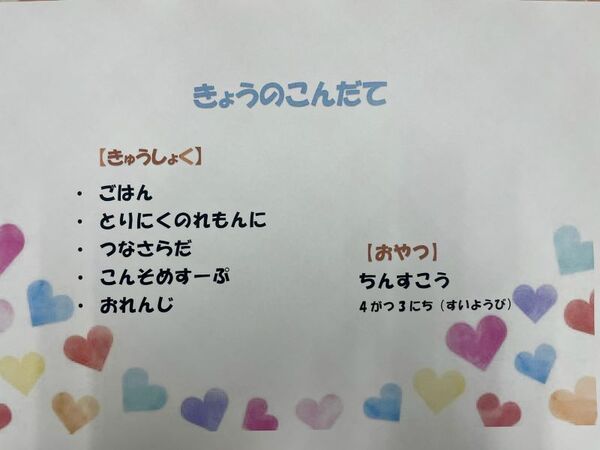 きょうのこんだて
【きゅうしょく】
・ ごはん
・ とりにくのれもんに
・ つなさらだ
・ こんそめすーぷ
・ おれんじ
【おやつ】
ちんすこう
4がつ3にち(すいようび)